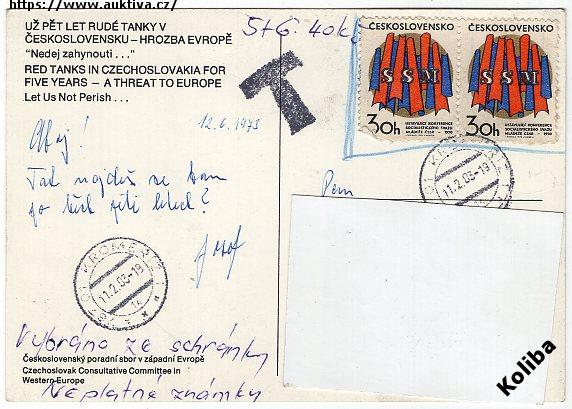 https://www.auktiva.cz/
UŽ PĚT LET RUDÉ TANKY V
ČESKOSLOVENSKU – HROZBA EVROPĚ
"Nedej zahynouti . . ."
RED TANKS IN CZECHOSLOVAKIA FOR
FIVE YEARS – A THREAT TO EUROPE
Let Us Not Perish . . .
12.6.1973
Ahoj!
Tak
po
let?
Josef
Vybráno ze schránky
Československý poradní sbor v západní Evropě
Czechoslovak Consultative Committee in
Western Europe
Neplatné známky
T
ČESKOSLOVENSKO
SSM
30h
USTAVUJÍCÍ KONFERENCE
SOCIALISTICKÉHO SVAZU
MLÁDEŽE ČSSR - 1970
ČESKOSLOVENSKO
SSM
30h
USTAVUJÍCÍ KONFERENCE
SOCIALISTICKÉHO SVAZU
MLÁDEŽE ČSSR - 1970
KROMĚŘÍŽ 1
11.2.83-19
KROMĚŘÍŽ 1
11.2.83-19
1a
Pan
Koliba